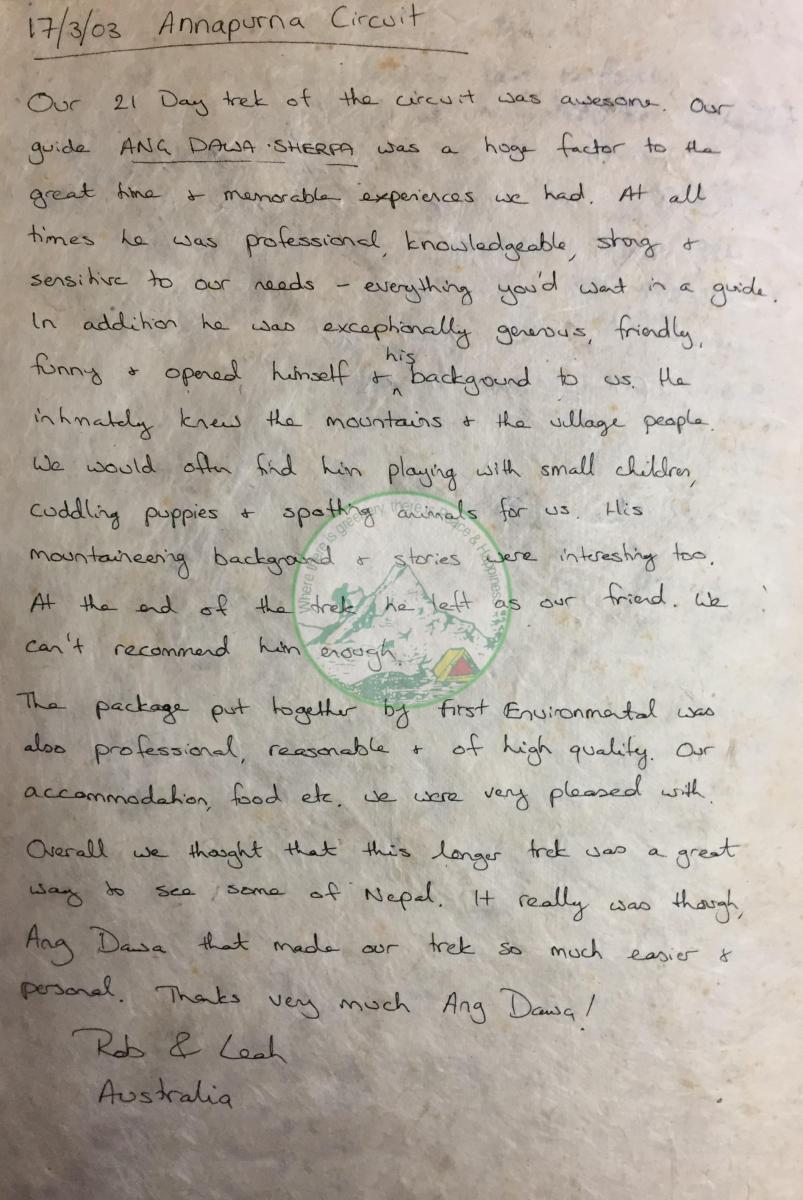 17/3/03 Annapurna Circuit
Our 21 Day trek of the circuit was awesome. Our
guide ANG DAWA SHERPA was a huge factor to the
great time & memorable experiences we had. At all
times he was professional, knowledgeable, strong &
sensitive to our needs - everything you'd want in a guide.
In addition he was exceptionally generous, friendly,
funny & opened himself & his background to us. He
intimately knew the mountains & the village people.
We would often find him playing with small children,
cuddling puppies & spotting animals for us. His
mountaineering background & stories were interesting too.
At the end of the trek he left as our friend. We
can't recommend him enough.
The package put together by first Environmental was
also professional, reasonable & of high quality. Our
accommodation, food etc. we were very pleased with.
Overall we thought that this longer trek was a great
way to see some of Nepal. It really was though,
Ang Dawa that made our trek so much easier &
personal. Thanks very much Ang Dawa!
Rob & Leah
Australia
Where there is greenery, there is & Happiness